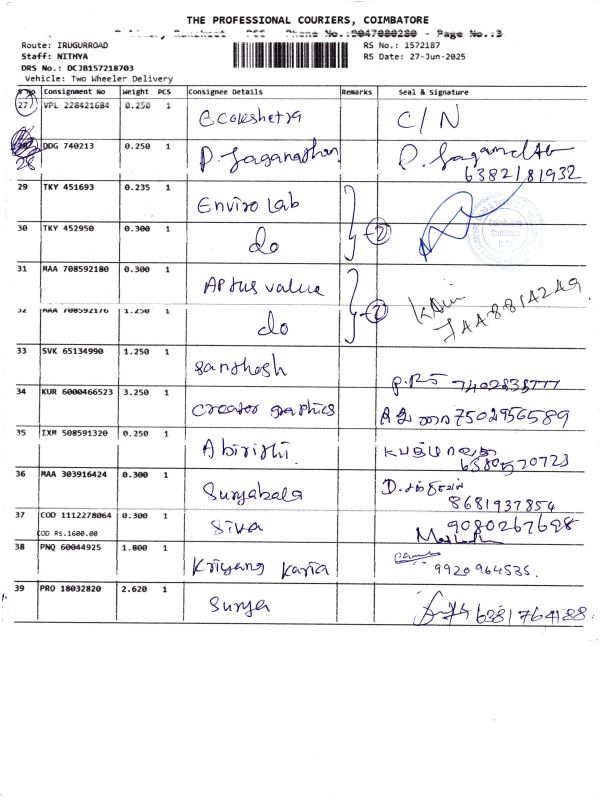 THE PROFESSIONAL COURIERS, COIMBATORE
Delivery Runsheet - PSC Phone No.:9047080280 - Page No.:3
Route: IRUGURROAD
RS No.: 1572187
Staff: NITHYA
RS Date: 27-Jun-2025
DRS No.: DCJB157218703
Vehicle: Two Wheeler Delivery
S No Consignment No Weight PCS Consignee Details Remarks Seal & Signature
27 VPL 228421684 0.250 1 Ecokshetra C/N
28 DDG 740213 0.250 1 P. Jaganathan
6382181932
29 TKY 451693 0.235 1 Enviro Lab
30 TKY 452950 0.300 1 do 2
31 MAA 708592180 0.300 1 Aptus value
32 MAA 708592176 1.250 1 do 2
33 SVK 65134990 1.250 1 Santhosh
34 KUR 6000466523 3.250 1 creator graphics 7502956589
35 IXM 508591320 0.250 1 Abirishi.
6380520723
36 MAA 303916424 0.300 1 Suryabala
8681937854
37 COD 1112278064 0.300 1 Siva 9080267698
COD Rs.1600.00
38 PNQ 60044925 1.800 1 Kriyang Karia 9920964535.
39 PRO 18032820 2.620 1 Surya 6381764188